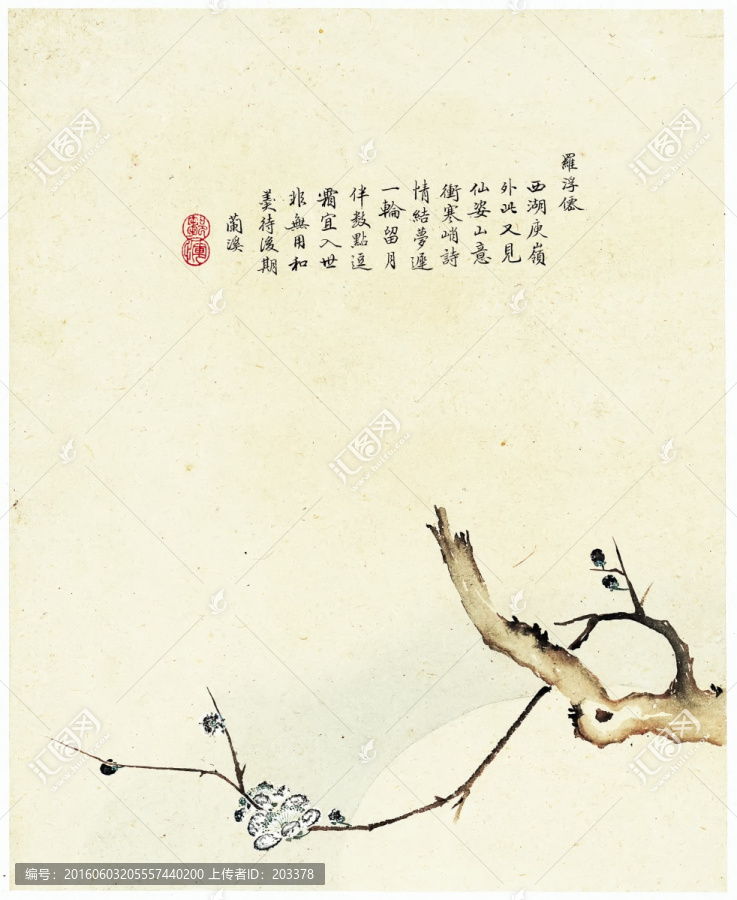 羅浮僊
西湖庾嶺
外此又見
仙姿山意
衝寒峭詩
情結夢遲
一輪留月
伴數點逗
霜宜入世
非無用和
羹待後期
蘭溪
汇图网
www.huitu.com
编号：20160603205557440200 上传者ID：203378